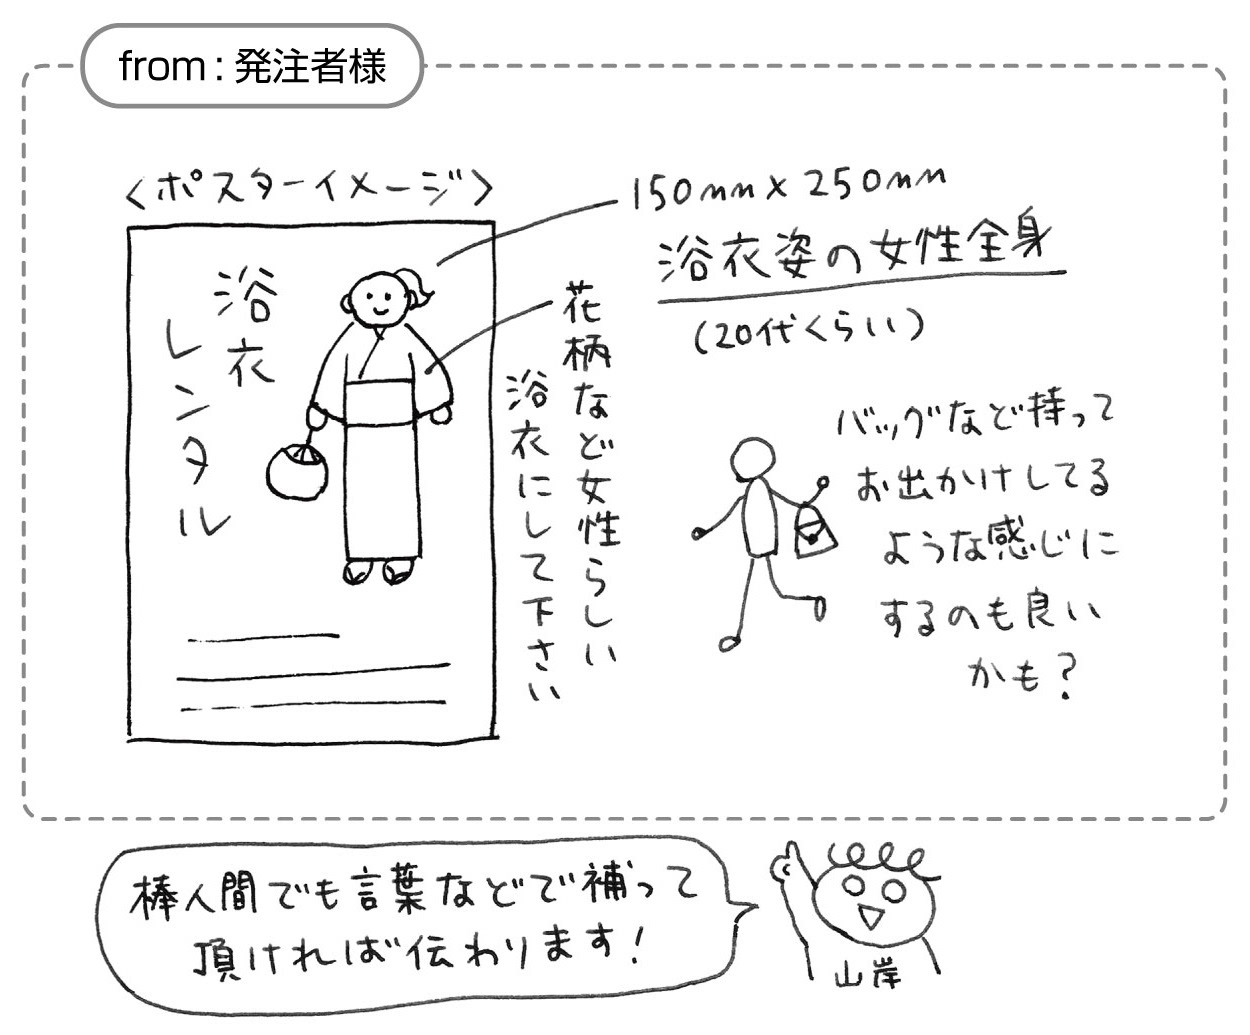 from : 発注者様
<ポスターイメージ>
浴衣
レンタル
150mm×250mm
浴衣姿の女性全身
(20代くらい)
花柄など女性らしい
浴衣にして下さい
バッグなど持って
お出かけしてる
ような感じに
するのも良い
かも?
棒人間でも言葉などで補って
頂ければ伝わります!
山岸